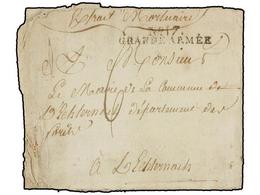 Extrait Mortuaire
N°.17.
GRANDE ARMÉE
A Monsieur
Le Maire de La Commune de
L'Echternach département des
forêts
à L'Echternach